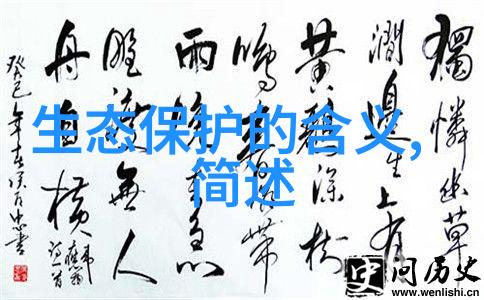 獨憐幽草
澗邊生上有
黄鹂深树
鳴春潮带
雨晚来急
野渡無人
舟自横
生态保护的含义,
简述
史问历史
www.wenlishi.cn